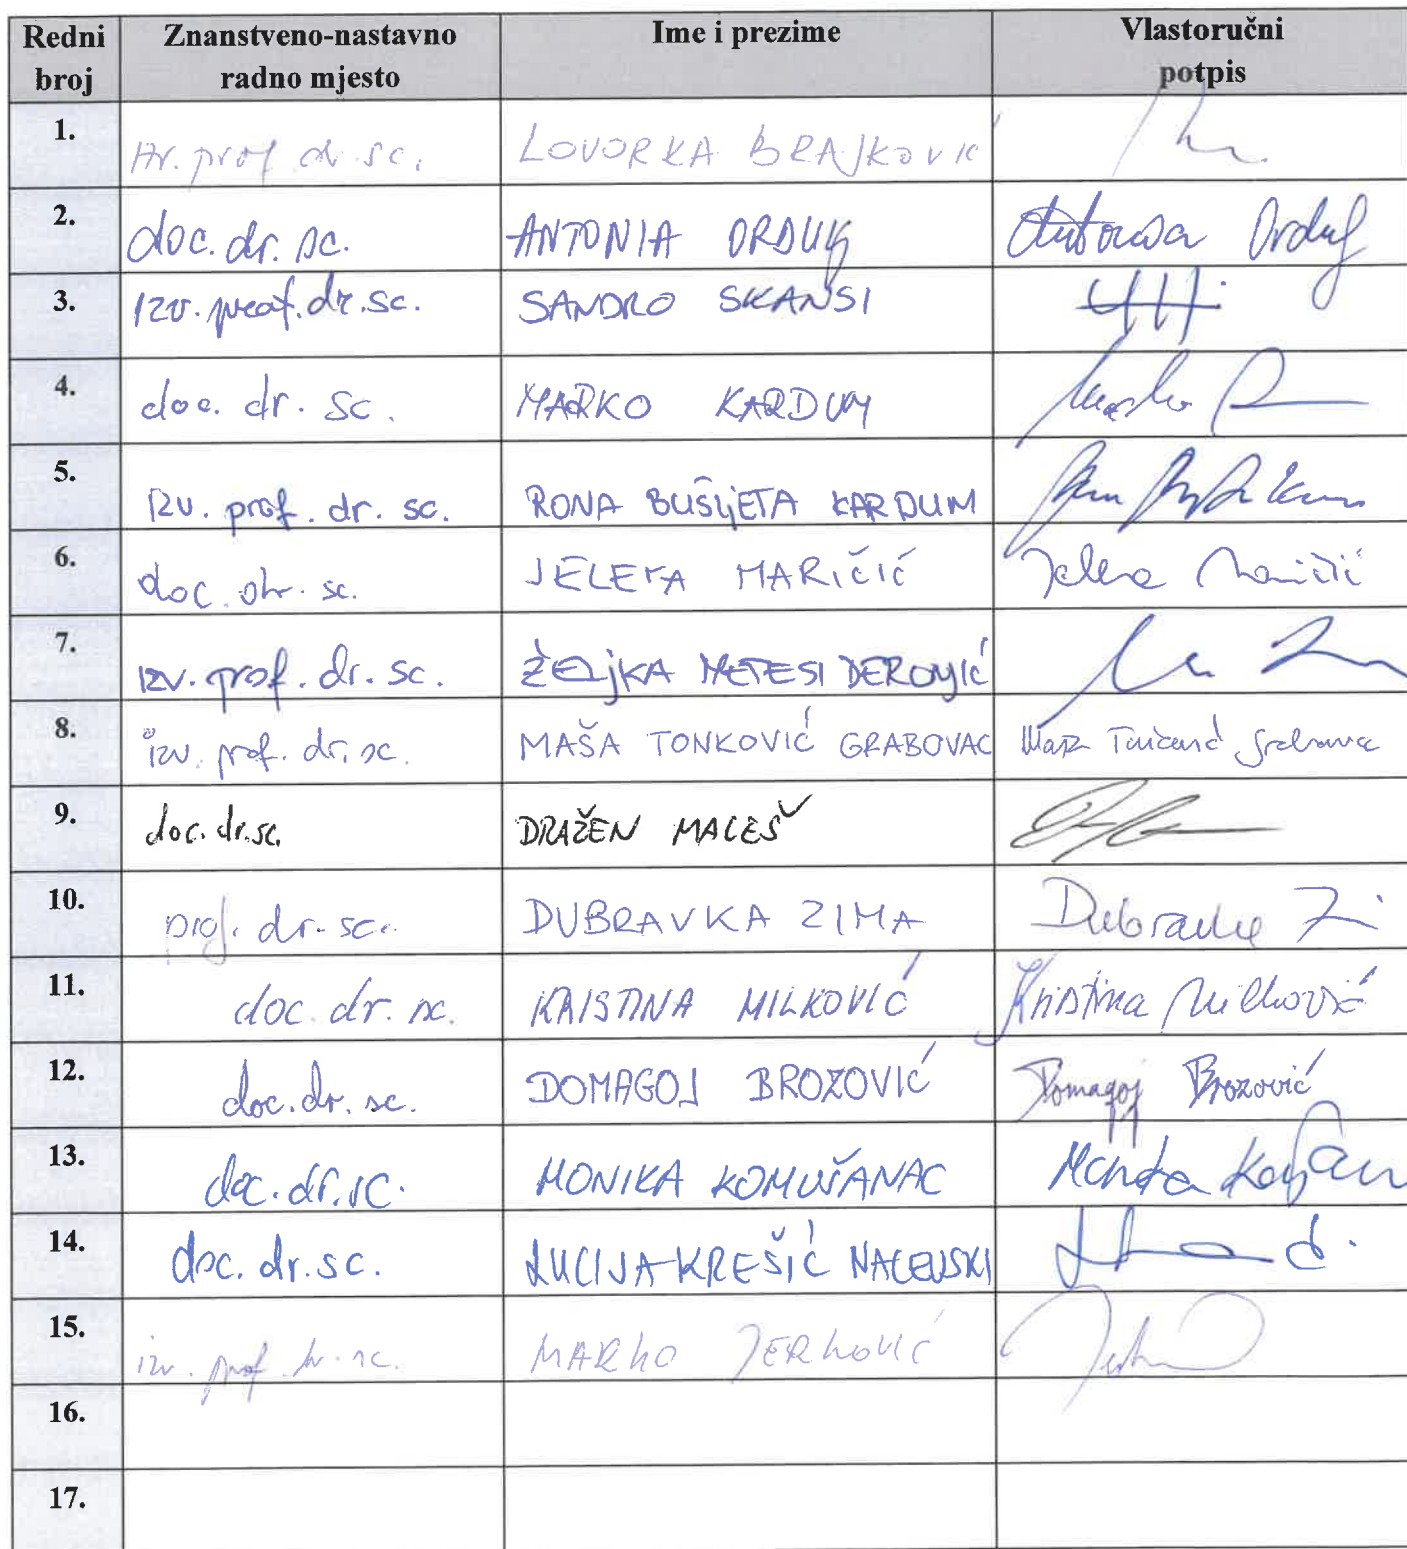 Redni broj Znanstveno-nastavno radno mjesto Ime i prezime Vlastoručni potpis
1. izv. prof dr sc. LOVORKA BRAJKOVIĆ
2. doc. dr. sc. ANTONIA ORDULJ Antonia Ordulj
3. izv. prof. dr. sc. SANDRO SKANSI
4. doc. dr. sc. MARKO KARDUM Marko
5. izv. prof. dr. sc. RONA BUŠLJETA KARDUM
6. doc. dr. sc. JELENA MARIČIĆ Jelena Maričić
7. izv. prof. dr. sc. ŽELJKA METESI DERONJIĆ
8. izv. prof. dr. sc. MAŠA TONKOVIĆ GRABOVAC Maša Tonković Grabovac
9. doc. dr. sc. DRAŽEN MALEŠ
10. prof. dr. sc. DUBRAVKA ZIMA Dubravka
11. doc. dr. sc. KRISTINA MILKOVIĆ Kristina Milković
12. doc. dr. sc. DOMAGOJ BROZOVIĆ Domagoj Brozović
13. doc. dr. sc. MONIKA KOMUŠANAC Monika
14. doc. dr. sc. LUCIJA KREŠIĆ NACEVSKI
15. izv. prof. dr. sc. MARKO JERKOVIĆ
16.
17.